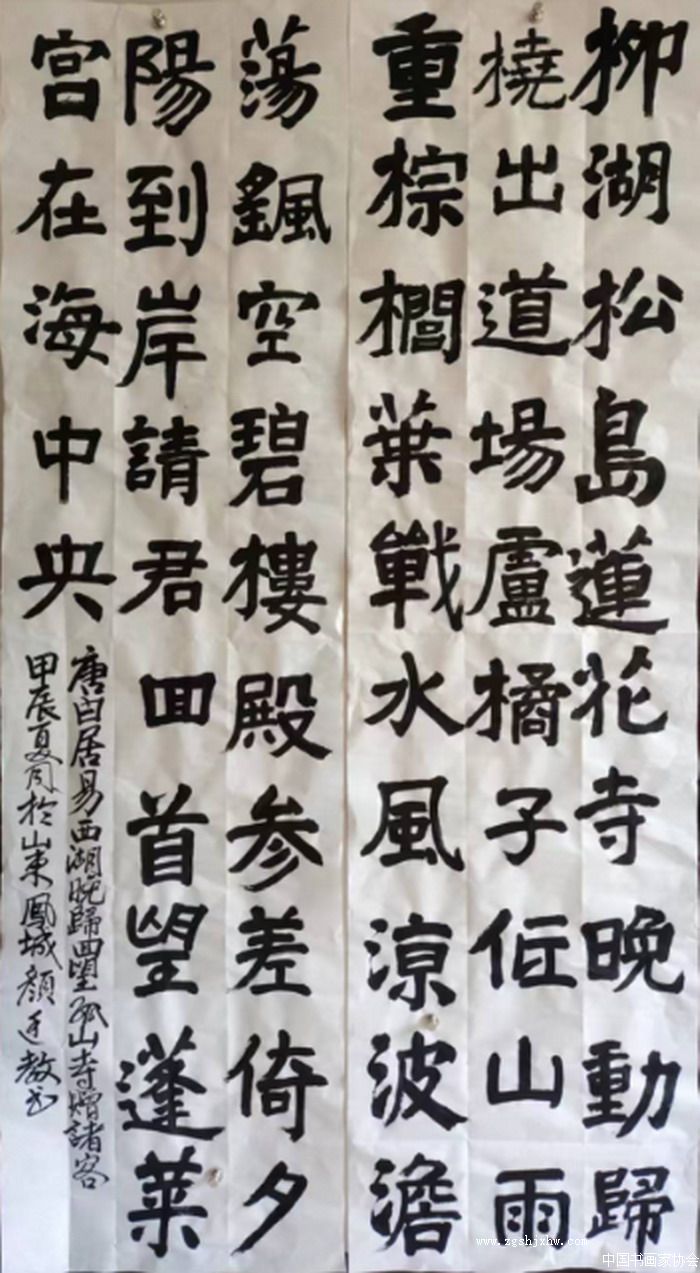 柳湖松島蓮花寺晚動歸
橈出道場盧橘子低山雨
重棕櫚葉戰水風涼波澹
蕩颻空碧樓殿参差倚夕
陽到岸請君回首望蓬莱
宮在海中央
唐白居易西湖晚歸回望孤山寺赠諸客
甲辰夏月於山東鳳城顏廷教书
www.zgshjxhw.com
中国书画家协会